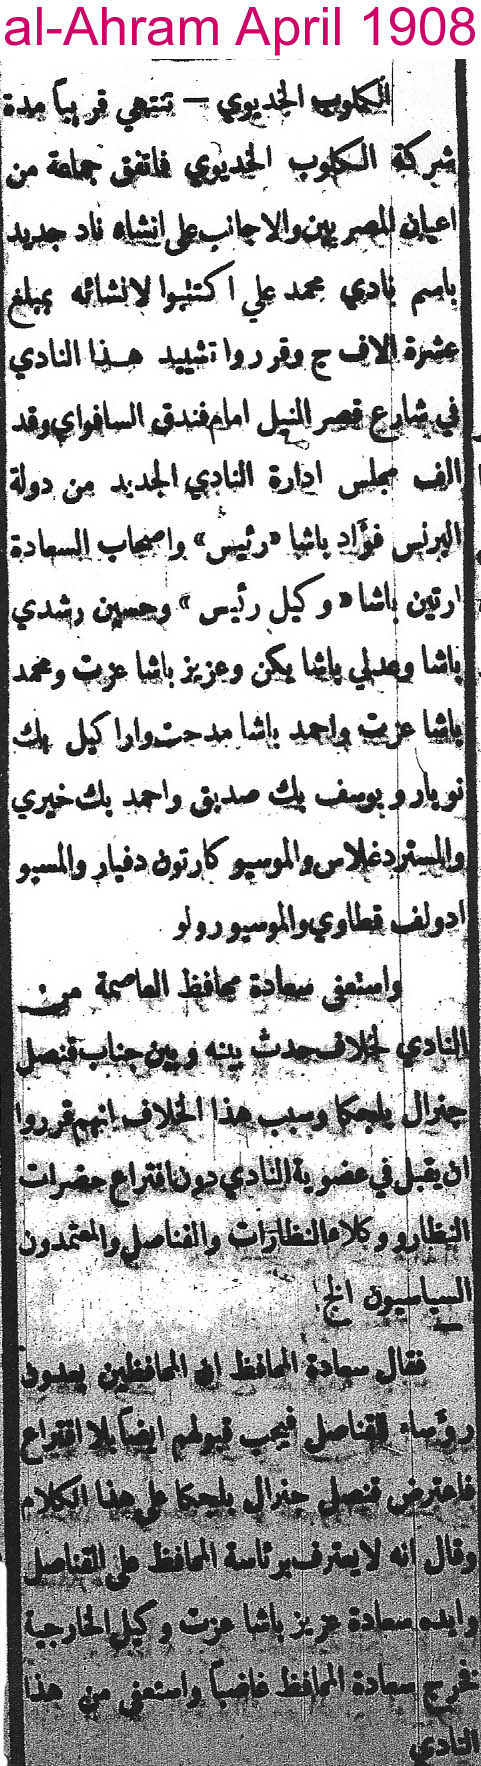 al-Ahram April 1908
الكلوب الخديوي — تنتهي قريباً مدة
شركة الكلوب الخديوي فاتفق جماعة من
اعيان المصريين والاجانب على انشاء ناد جديد
باسم نادي محمد علي اكتتبوا لانشائه بمبلغ
عشرة الاف ج وقرروا تشييد هذا النادي
في شارع قصر النيل امام فندق السافواي وقد
الف مجلس ادارة النادي الجديد من دولة
البرنس فؤاد باشا «رئيس» واصحاب السعادة
ارتين باشا «وكيل رئيس» وحسين رشدي
باشا وعدلي باشا يكن وعزيز باشا عزت ومحمد
باشا عزت واحمد باشا مدحت واراكيل بك
نوبار ويوسف بك صديق واحمد بك خيري
والمستر دغلاس والموسيو كارتون دفيار والمسيو
ادولف قطاوي والموسيو رولو
واستعفى سعادة محافظ العاصمة من
النادي لخلاف حدث بينه وبين جناب قنصل
جنرال بلجكا وسبب هذا الخلاف انهم قرروا
ان يقبل في عضوية النادي دون اقتراع حضرات
النظار ووكلاء النظارات والقناصل والمعتمدون
السياسيون الخ
فقال سعادة المحافظ ان المحافظين يعدون
رؤساء للقناصل فيجب قبولهم ايضاً بلا اقتراع
فاعترض قنصل جنرال بلجكا على هذا الكلام
وقال انه لا يعترف برئاسة المحافظ على القناصل
وايده سعادة عزيز باشا عزت وكيل الخارجية
فخرج سعادة المحافظ غاضباً واستعفى من هذا
النادي